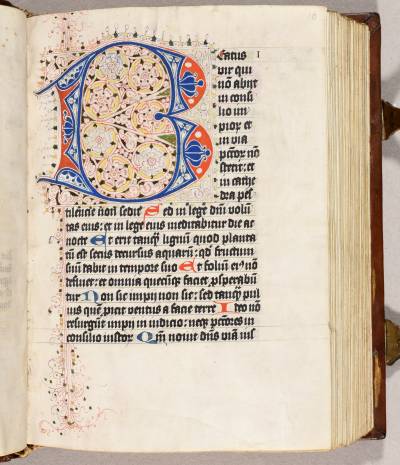 Beatus
vir qui
nō abijt
in consi
lio im
pioꝝ et
in via
pctoꝝ nō
stetit: et
in cathe
dra pes
tilencie nōn sedit Sed in lege dm̄ volun
tas eius: et in lege eius meditabitur die ac
nocte Et erit tanqͣ lignum quod planta
tum est secus decursus aquarum: qd̄ fructum
suum dabit in tempore suo Et folium eiꝰ nō
defluet: et omnia quecūqꝫ faciet ꝓsperabū
tur Non sic impij non sic: sed tanqͣ pul
uis quē proicit ventus a facie terre Ideo nō
resurgūt impij in iudicio: neqꝫ pctores in
consilio iustoꝝ Qm̄ nouit dn̄s viā ius